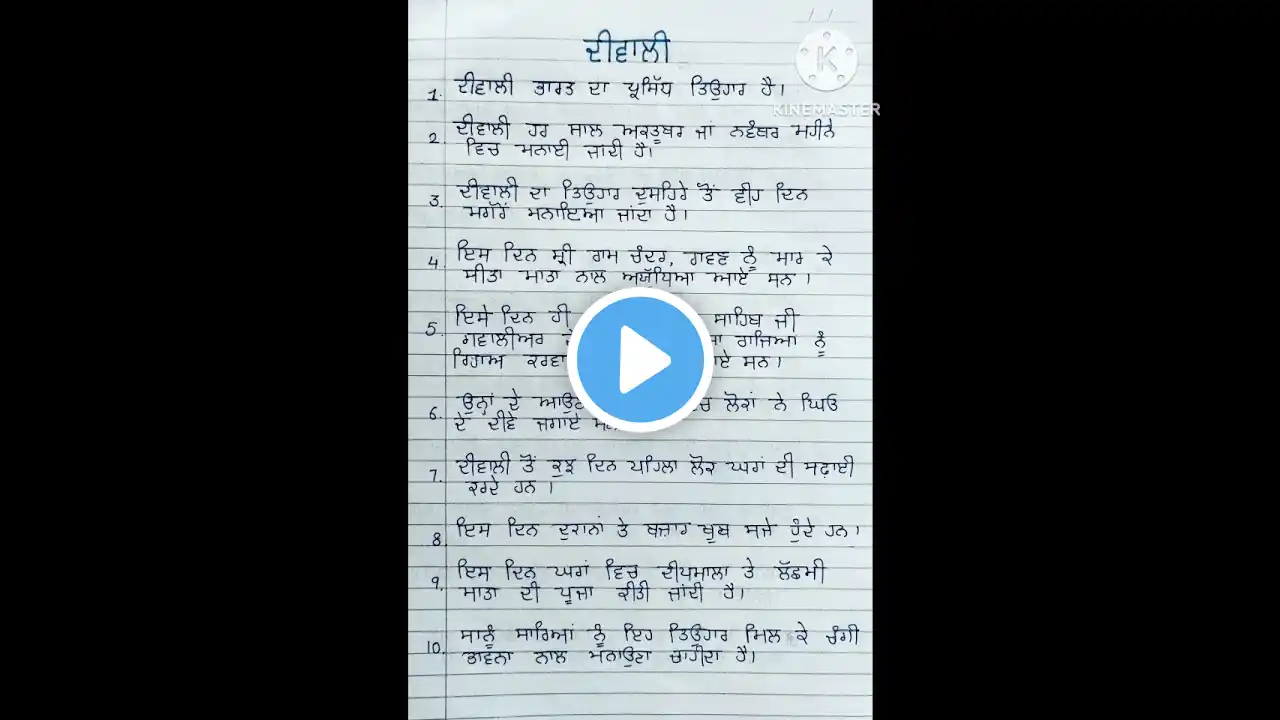 ਦੀਵਾਲੀ
KINEMASTER
1. ਦੀਵਾਲੀ ਭਾਰਤ ਦਾ ਪ੍ਰਸਿੱਧ ਤਿਉਹਾਰ ਹੈ।
2. ਦੀਵਾਲੀ ਹਰ ਸਾਲ ਅਕਤੂਬਰ ਜਾਂ ਨਵੰਬਰ ਮਹੀਨੇ
ਵਿਚ ਮਨਾਈ ਜਾਂਦੀ ਹੈ।
3. ਦੀਵਾਲੀ ਦਾ ਤਿਉਹਾਰ ਦੁਸਹਿਰੇ ਤੋਂ ਵੀਹ ਦਿਨ
ਮਗਰੋਂ ਮਨਾਇਆ ਜਾਂਦਾ ਹੈ।
4. ਇਸ ਦਿਨ ਸ਼੍ਰੀ ਰਾਮ ਚੰਦਰ, ਰਾਵਣ ਨੂੰ ਮਾਰ ਕੇ
ਸੀਤਾ ਮਾਤਾ ਨਾਲ ਅਯੋੱਧਿਆ ਆਏ ਸਨ।
5. ਇਸੇ ਦਿਨ ਹੀ ਸਾਹਿਬ ਜੀ
ਗਵਾਲੀਅਰ ਰਾਜਿਆ ਨੂੰ
ਰਿਹਾਅ ਸਨ।
6. ਉਨ੍ਹਾਂ ਦੇ ਲੋਕਾਂ ਨੇ ਘਿਓ
ਦੇ ਦੀਵੇ ਜਗਾਏ
7. ਦੀਵਾਲੀ ਤੋਂ ਕੁਝ ਦਿਨ ਪਹਿਲਾ ਲੋਕ ਘਰਾਂ ਦੀ ਸਫ਼ਾਈ
ਕਰਦੇ ਹਨ।
8. ਇਸ ਦਿਨ ਦੁਕਾਨਾਂ ਤੇ ਬਜ਼ਾਰ ਖੂਬ ਸਜੇ ਹੁੰਦੇ ਹਨ।
9. ਇਸ ਦਿਨ ਘਰਾਂ ਵਿਚ ਦੀਪਮਾਲਾ ਤੇ ਲੱਛਮੀ
ਮਾਤਾ ਦੀ ਪੂਜਾ ਕੀਤੀ ਜਾਂਦੀ ਹੈ।
10. ਸਾਨੂੰ ਸਾਰਿਆਂ ਨੂੰ ਇਹ ਤਿਉਹਾਰ ਮਿਲ ਕੇ ਚੰਗੀ
ਭਾਵਨਾ ਨਾਲ ਮਨਾਉਣਾ ਚਾਹੀਦਾ ਹੈ।